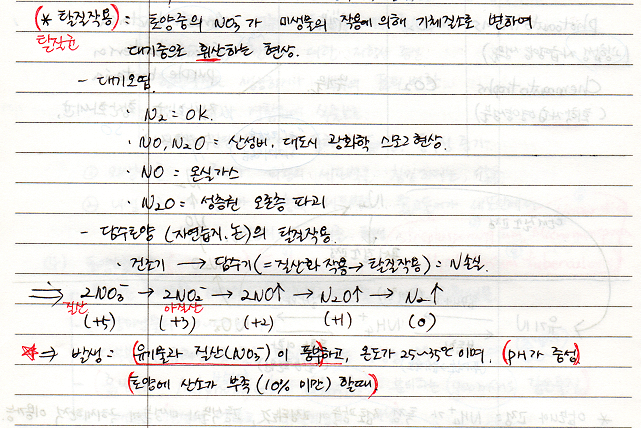 (* 탈질작용) : 토양중의 NO₃⁻가 미생물의 작용에 의해 기체질소로 변하여
탈질균 대기중으로 휘산하는 현상.
- 대기오염.
· N₂ = OK.
· NO, N₂O = 산성비. 대도시 광화학 스모그 현상.
· NO = 온실가스
· N₂O = 성층권 오존층 파괴
- 담수토양 (자연습지, 논)의 탈질작용.
· 건조기 → 담수기 (= 질산화 작용 → 탈질작용) = N손실.
⇒ 2NO₃⁻ → 2NO₂⁻ → 2NO↑ → N₂O↑ → N₂↑
질산 아질산
(+5) (+3) (+2) (+1) (0)
* ⇒ 발생 = (유기물과 질산(NO₃⁻)이 풍부하고, 온도가 25~35℃ 이며, (pH가 중성)
(토양에 산소가 부족 (10% 미만) 할때)